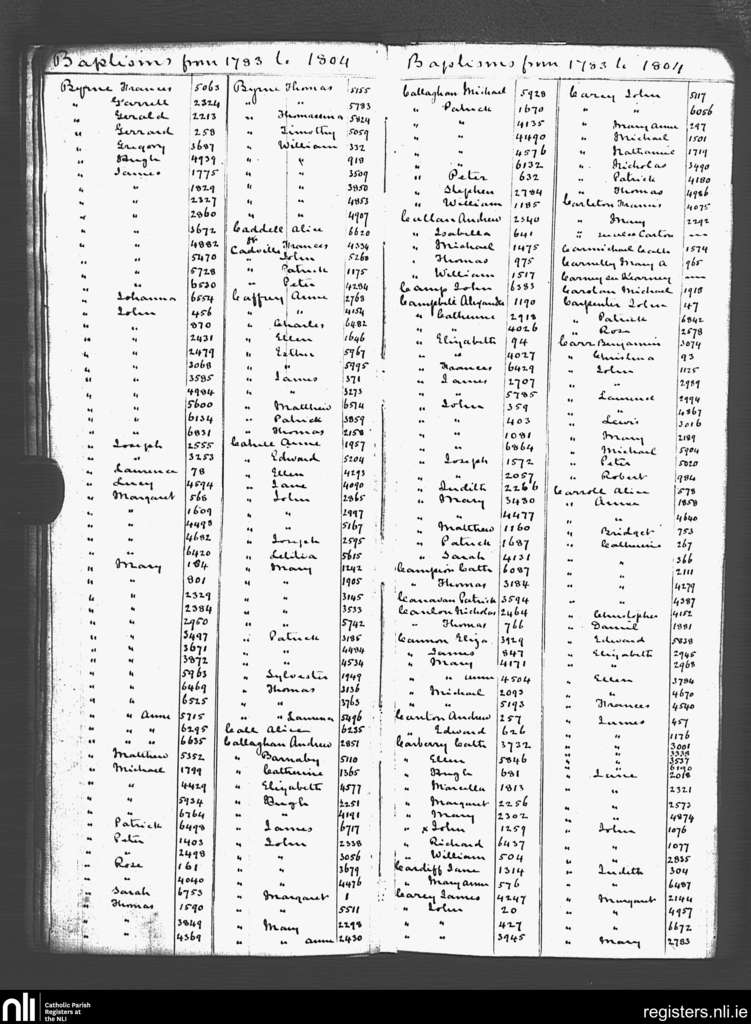 Baptisms from 1783 to 1804
Byrne Frances 5063
" Garrett 2324
" Gerald 2213
" Gerrard 258
" Gregory 3687
" Hugh 4939
" James 1775
" " 1829
" " 2327
" " 2860
" " 3672
" " 4882
" " 5470
" " 5728
" " 6530
" Johanna 6554
" John 456
" " 870
" " 2431
" " 2479
" " 3068
" " 3585
" " 4984
" " 5600
" " 6134
" " 6831
" Joseph 2555
" " 3253
" Laurence 78
" Lucy 4594
" Margaret 568
" " 1609
" " 4498
" " 4682
" " 6420
" Mary 184
" " 801
" " 2329
" " 2384
" " 2950
" " 3497
" " 3671
" " 3872
" " 5963
" " 6469
" " 6525
" " Anne 5715
" " " 6295
" " " 6635
" Matthew 5352
" Michael 1799
" " 4429
" " 5934
" " 6764
" Patrick 6498
" Peter 1403
" " 2498
" Rose 161
" " 4040
" Sarah 6753
" Thomas 1590
" " 3849
" " 4369
Byrne Thomas 5155
" " 5783
" Thomasina 5824
" Timothy 5059
" William 332
" " 918
" " 3509
" " 3850
" " 4853
" " 4907
Caddell Alice 6620
or Cadville Frances 4334
" John 5268
" Patrick 1175
" Peter 4284
Caffrey Anne 2768
" " 4154
" Charles 6482
" Ellen 1646
" Esther 5967
" " 5995
" James 371
" " 3273
" Matthew 6574
" Patrick 3859
" Thomas 2158
Cahill Anne 1957
" Edward 5204
" Ellen 4293
" Jane 4090
" John 2865
" " 2997
" " 5167
" Joseph 2595
" Letitia 5615
" Mary 1242
" " 1905
" " 3145
" " 3533
" " 5742
" Patrick 3185
" " 4484
" " 4534
" Sylvester 1949
" Thomas 3136
" " 3763
" " Laurence 5496
Call Alice 6235
Callaghan Andrew 2851
" Barnaby 5110
" Catherine 1365
" Elizabeth 4577
" Hugh 2251
" " 4191
" James 6717
" John 2338
" " 3056
" " 3679
" " 4476
" Margaret 1
" " 5511
" Mary 2298
" " Anne 2430
Baptisms from 1783 to 1804
Callaghan Michael 5928
" Patrick 1670
" " 4135
" " 4490
" " 4576
" " 6132
" Peter 632
" Stephen 2784
" William 1185
Cullan Andrew 2340
" Isabella 641
" Michael 1475
" Thomas 975
" William 1517
Camp John 6383
Camphill Alexander 1190
" Catherine 2918
" " 4026
" Elizabeth 94
" " 4027
" Frances 6429
" James 2707
" " 5785
" John 359
" " 403
" " 1081
" " 6864
" Joseph 1572
" " 2057
" Judith 2266
" Mary 3430
" " 4477
" Matthew 1160
" Patrick 1687
" Sarah 4131
Campion Cath 6087
" Thomas 3184
Canavan Patrick 3594
Canlon Nicholas 2464
" Thomas 766
Cannon Eliza 3929
" James 847
" Mary 4171
" " Anne 4504
" Michael 2093
" " 5193
Canton Andrew 257
" Edward 626
Carberry Cath 3732
" Ellen 5846
" Hugh 681
" Marcella 1813
" Margaret 2256
" Mary 2302
" x John 1259
" Richard 6437
" William 504
Cardiff Jane 1314
" Mary Anne 576
Carey James 4247
" John 20
" " 427
" " 3945
Carey John 5117
" " 6056
" Mary Anne 297
" Michael 1501
" Nathaniel 1719
" Nicholas 3490
" Patrick 4180
" Thomas 4986
Carleton Frances 4075
" Mary 2292
" see also Carton —
Carmichael Cath 1574
Carnelly Mary A 965
Carney see Kearney —
Carolan Michael 1918
Carpenter John 47
" Patrick 6842
" Rose 2578
Carr Benjamin 3074
" Christina 93
" John 1125
" " 2989
" Laurence 2994
" " 4867
" Lewis 3016
" Mary 2189
" Michael 5904
" Peter 5020
" Robert 984
Carroll Alice 578
" Anne 1858
" " 4640
" Bridget 753
" Catherine 267
" " 366
" " 2111
" " 4279
" " 4387
" Christopher 4152
" Daniel 1881
" Edward 5838
" Elizabeth 2945
" " 2968
" Ellen 3784
" " 4670
" Frances 4540
" James 457
" " 1176
" " 3001
" " 3339
" " 3537
" " 6190
" Jane 2018
" " 2321
" " 2573
" " 4874
" John 1076
" " 1077
" " 2835
" Judith 304
" " 6487
" Margaret 2144
" " 4957
" " 6672
" Mary 2783
nli
Catholic Parish
Registers at
the NLI
registers.nli.ie